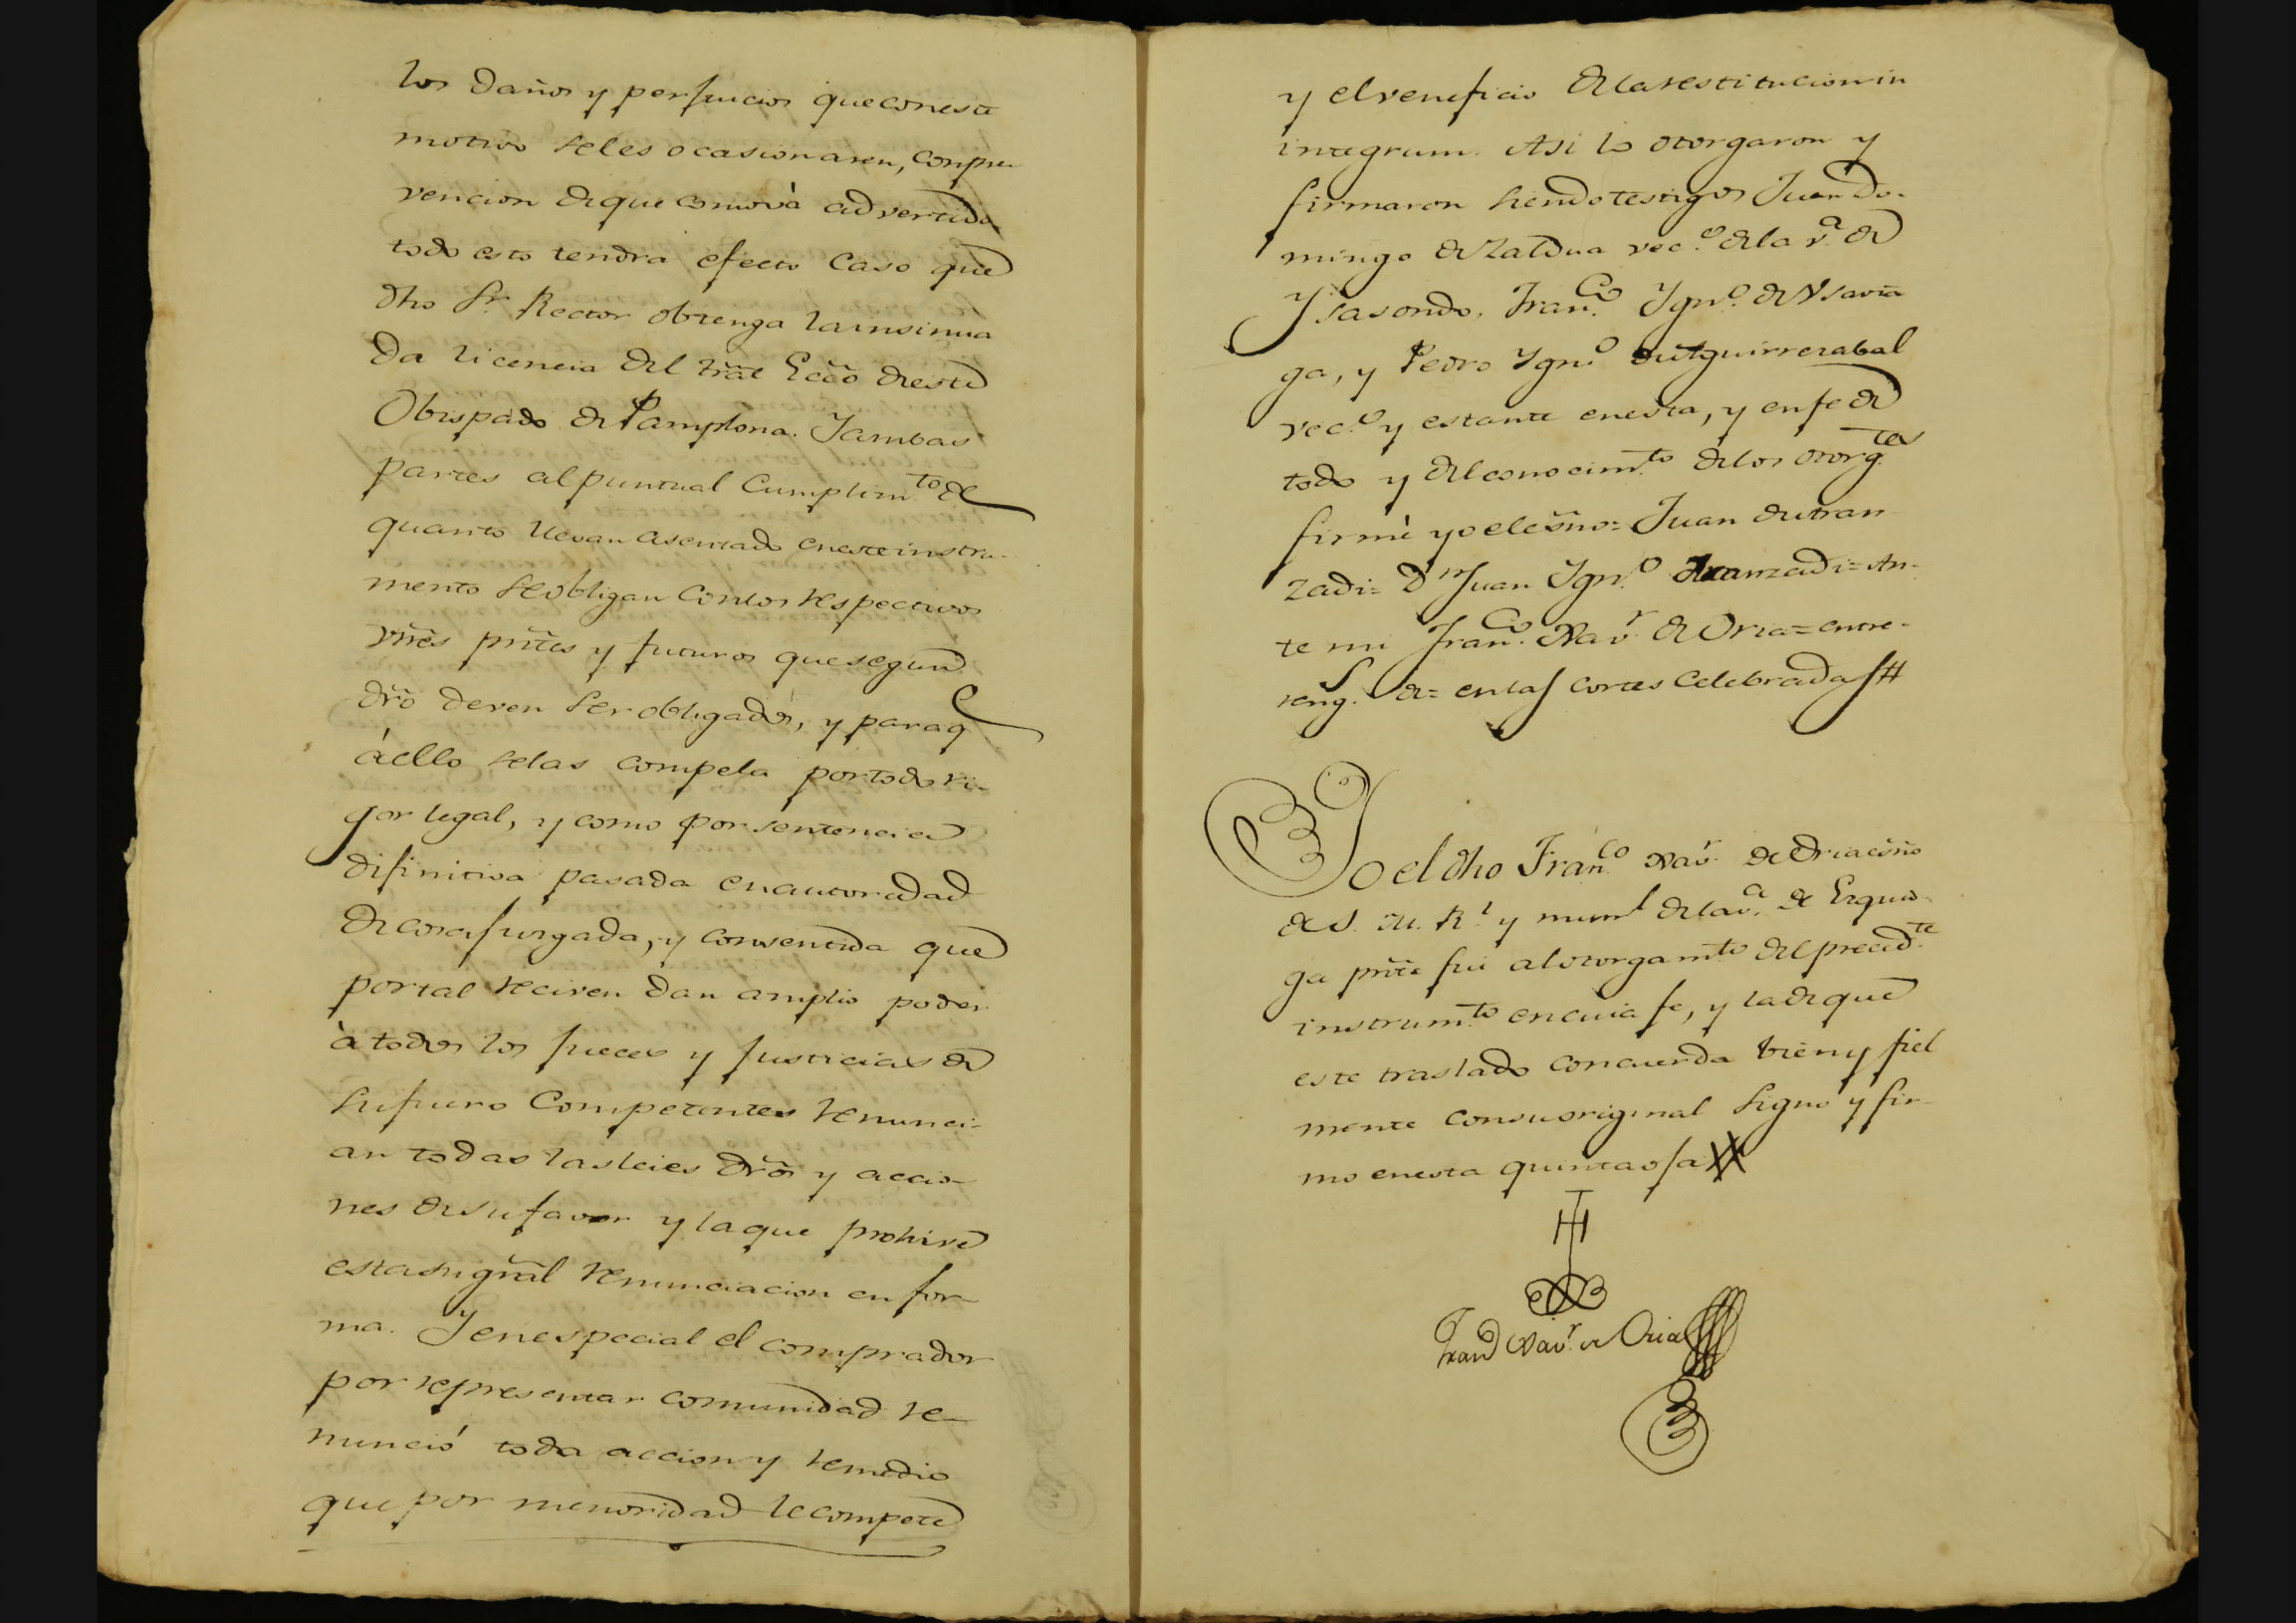 los daños y perjuicios que con este
motivo seles ocasionaren, con pre
vencion de que como và advertido
todo esto tendra efecto Caso que
dho Sr. Rector obtenga la insinua
da licencia del Trãl Eccõ de este
Obispado de Pamplona. Y ambas
partes al puntual Cumplim.to de
quanto llevan asentado en este instru-
mento se obligan con los respectivos
vnẽs pñtes y futuros que segun
dr̃o deven ser obligados, y para q
à ello selas compela por todo ri-
gor legal, y como por sentencia
difinitiva pasada en autoridad
de cosa juzgada, y consentida que
por tal reciven dan amplio poder
à todos los jueces y justicias de
su fuero Competentes renunci-
an todas las leies dr̃os y accio-
nes de su favor y la que prohive
esta su gñral renunciacion en for-
ma. Y en especial el comprador
por representar comunidad re-
nunciò toda accion y remedio
que por menoridad le compete
y el veneficio de la restitucion in
integrum. Asi lo otorgaron y
firmaron siendo testigos Juan Do-
mingo de Zaldua vec.o de la v.a de
Ysasondo, Fran.co Ygn.o de Usavia
ga, y Pedro Ygn.o de Aguirrezabal
vec.o y estante en esta, y en fe de
todo y del conocim.to de los otorg.tes
firmè yo el es̃no= Juan de Aran
zadi= D.n Juan Ygn.o de Aranzadi= An-
te mi Fran.co Xav.r de Oria= entre-
reng.s de= en las cortes Celebradas #
Yo el dho Fran.co Xav.r de Oria es̃no
de S. M. R.l y num.l de la v.a de Ezquio
ga pñte fui al otorgam.to del preced.te
instrum.to en cuia fe, y la de que
este traslado concuerda bien y fiel
mente con su original signo y fir-
mo en esta quinta oja
Fran.co Xav.r de Oria